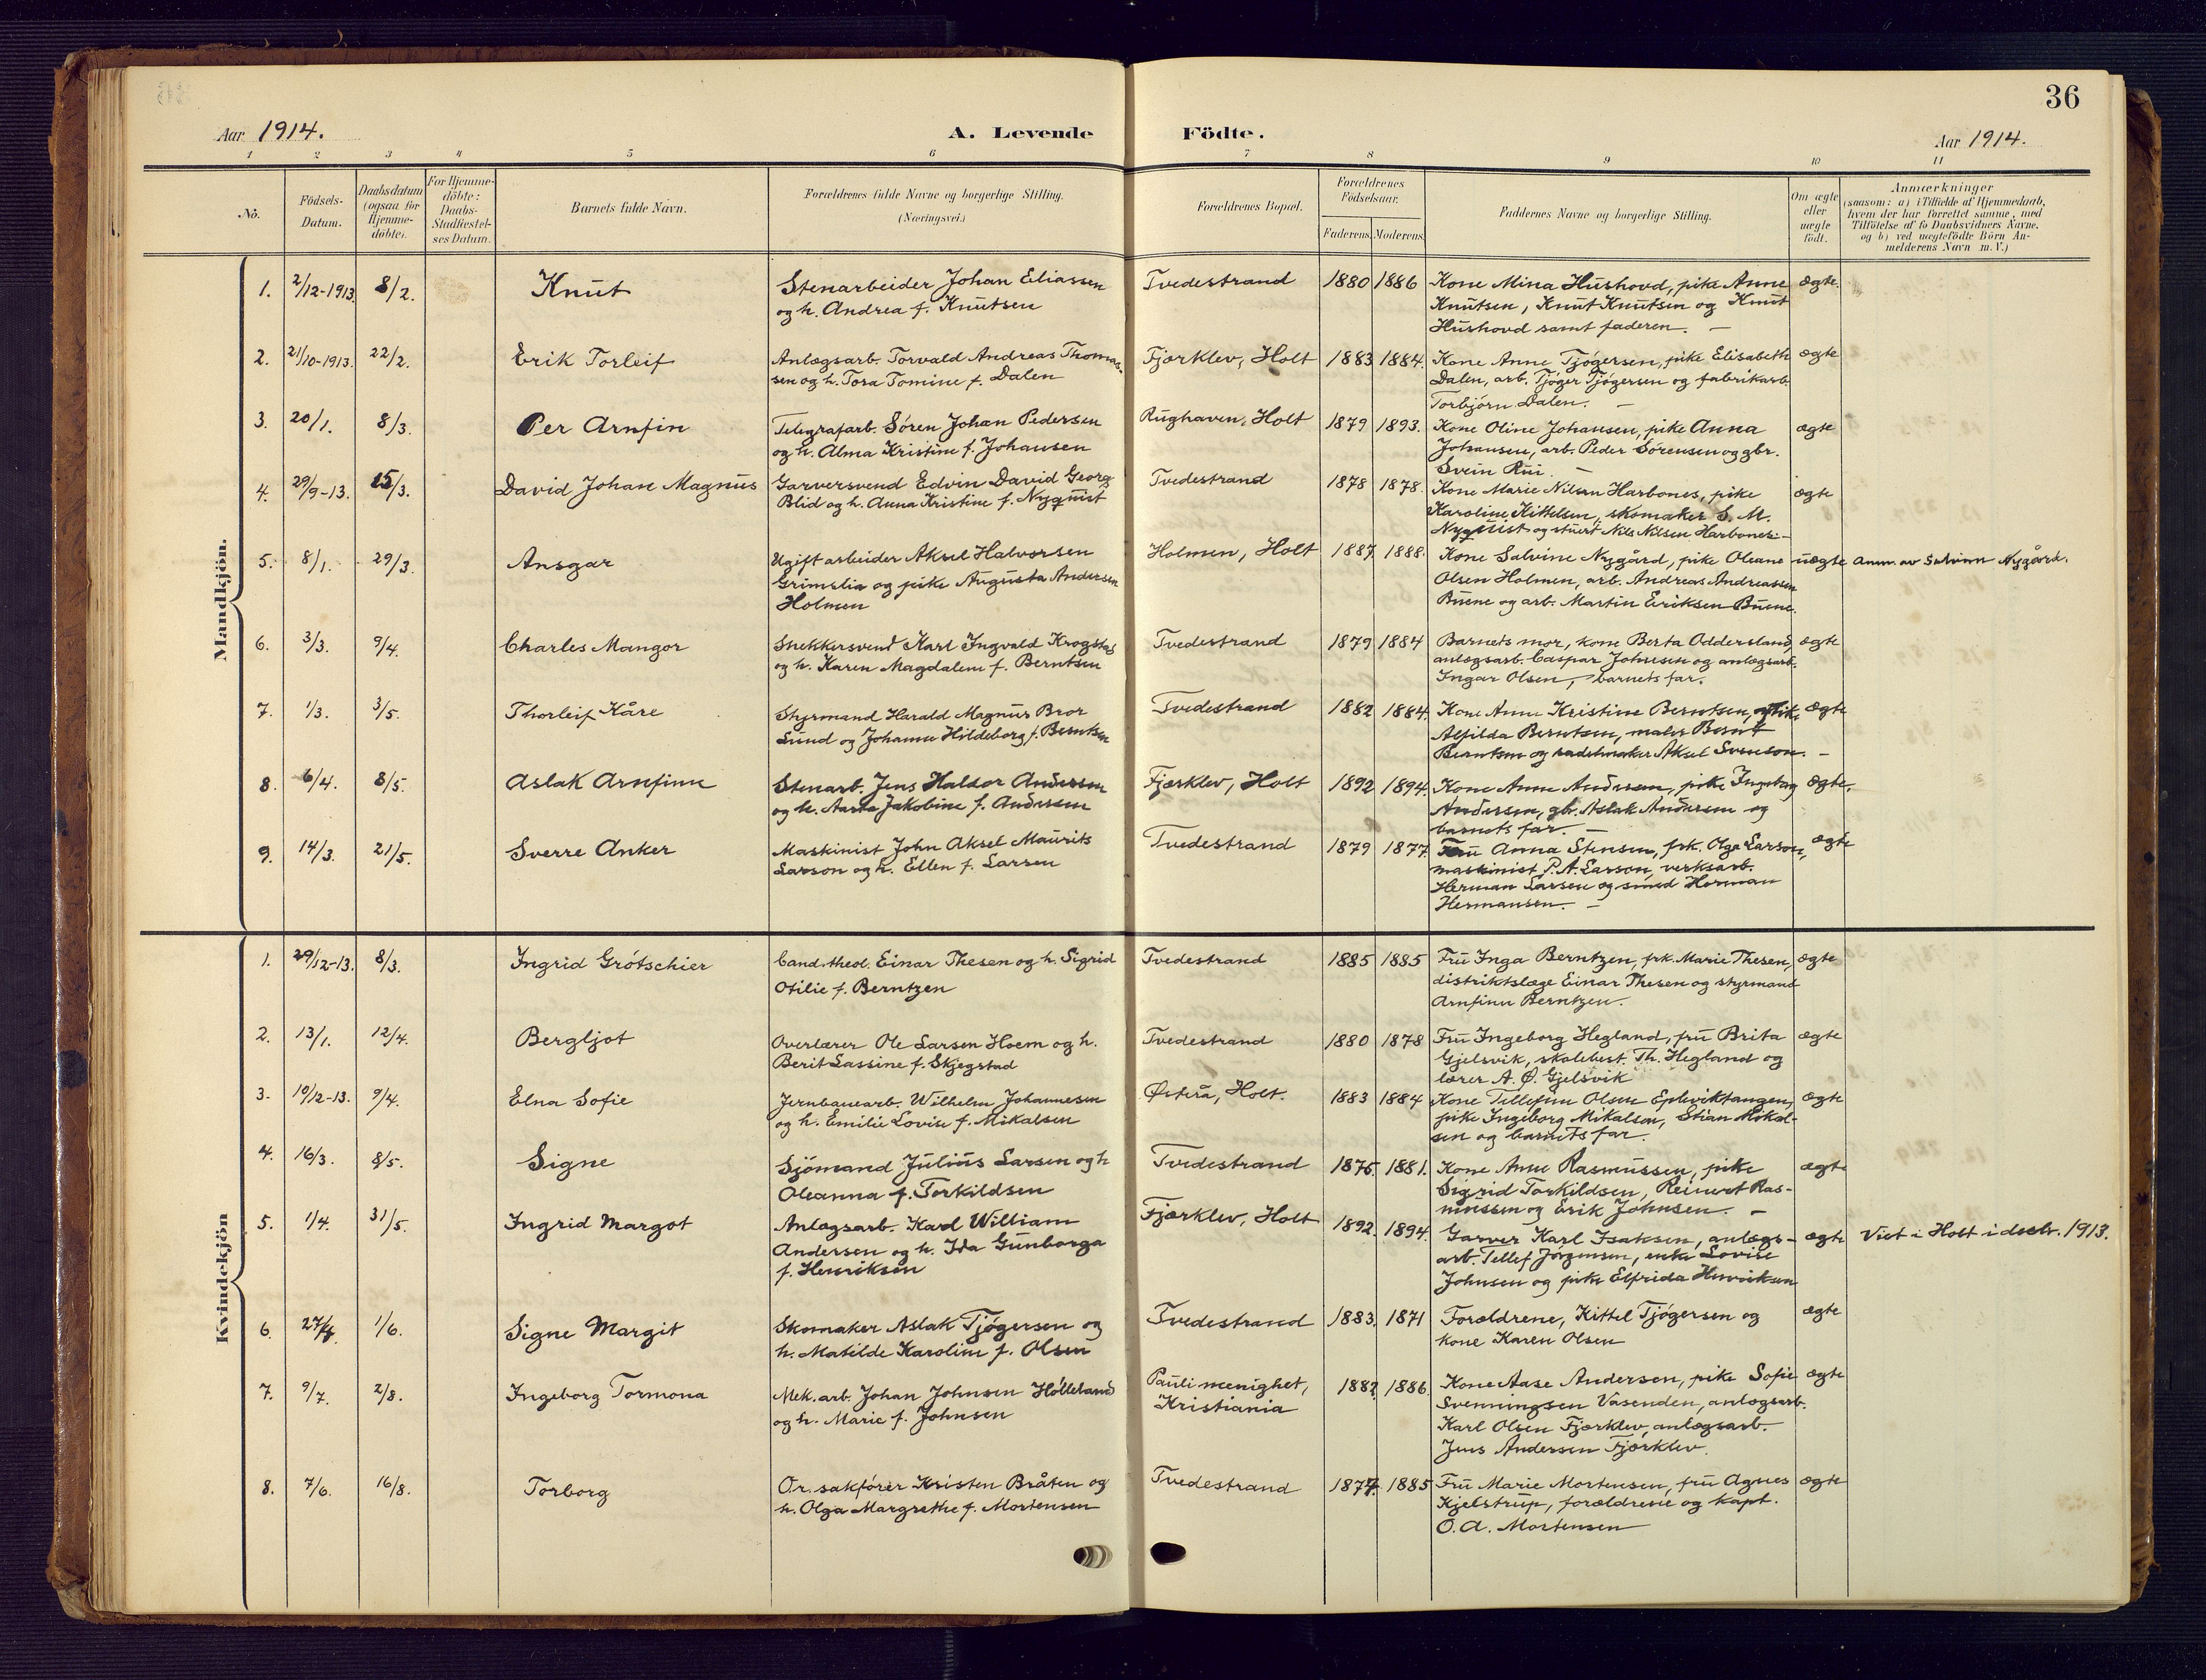 36
Aar 1914.
A. Levende Födte.
Aar 1914.
1 2 3 4 5 6 7 8 9 10 11
No.
Födsels-
Datum.
Daabsdatum
(ogsaa for
Hjemme-
döbte).
For Hjemme-
döbte:
Daabs-
Stadfæstel-
ses Datum.
Barnets fulde Navn.
Forældrenes fulde Navne og borgerlige Stilling.
(Næringsvei.)
Forældrenes Bopæl.
Forældrenes
Födselsaar.
Faderens. Moderens.
Faddernes Navne og borgerlige Stilling.
Om ægte
eller
uægte
född.
Anmærkninger
(saasom: a) i Tilfælde af Hjemmedaab,
hvem der har forrettet samme, med
Tilföielse af to Daabsvidners Navne.
og b) ved uægtefödte Börn An-
melderens Navn m. V.)
Mandkjön.
1. 2/12-1913. 8/2. Knut Stenarbeider Johan Eliassen Tvedestrand 1880 1886 Kone Mina Hushovd, pike Anne ægte.
og h. Andrea f. Knutsen Knutsen, Knut Knutsen og Knut
Hushovd samt faderen. —
2. 21/10-1913. 22/2. Erik Torleif Anlægsarb. Torvald Andreas Thomas- Fjærklev, Holt 1883 1884. Kone Anne Tjøgersen, pike Elisabeth ægte
sen og h. Tora Tomine f. Dalen Dalen, arb. Tjøger Tjøgersen og fabrikarb.
Torbjørn Dalen. —
3. 20/1. 8/3. Per Arnfin Telegrafarb. Søren Johan Pedersen Rughaven, Holt 1879 1893. Kone Oline Johansen, pike Anna ægte
og h. Alma Kristine f. Johansen Johansen, arb. Peder Sørensen og gbr.
Svein Rui. —
4. 29/9-13. 15/3. David Johan Magnus Garversvend Edvin David Georg Tvedestrand 1878 1878. Kone Marie Nilsen Harbones, pike ægte
Blid og h. Anna Kristine f. Nyquist Karoline Kittelsen, skomaker S. M.
Nyquist og stuert Nils Nilsen Harbones.—
5. 8/1. 29/3. Ansgar Ugift arbeider Aksel Halvorsen Holmen, Holt 1887 1888. Kone Salvine Nygård, pike Oleane uægte Anm. av Salvine Nygård.
Grimslia og pike Augusta Andersen Olsen Holmen, arb. Andreas Andreassen
Holmen Buene og arb. Martin Eriksen Buene.
6. 3/3. 9/4. Charles Mangor Snekkersvend Karl Ingvald Krogstad Tvedestrand 1879 1884 Barnets mor, kone Berta Oddersland, ægte
og h. Karen Magdalene f. Berntsen anlægsarb. Caspar Johnsen og anlægsarb.
Ingar Olsen, barnets far.
7. 1/3. 3/5. Thorleif Kåre Styrmand Harald Magnus Bror Tvedestrand 1882 1884. Kone Anne Kristine Berntsen, pike ægte
Lund og Johanne Hildeborg f. Berntsen Alfilda Berntsen, maler Bernt
Berntsen og sadelmaker Aksel Svenson. —
8. 6/4. 8/5. Aslak Arnfinn Stenarb. Jens Halvor Andersen Fjærklev, Holt 1892 1894. Kone Anne Andersen, pike Ingeborg ægte.
og h. Aarte Jakobine f. Andersen Andersen, gb. Aslak Andersen og
barnets far. —
9. 14/3. 21/5. Sverre Anker Maskinist John Aksel Maurits Tvedestrand 1879 1877. Fru Anna Stensen, frk. Olga Larson, ægte
Larson og h. Ellen f. Larsen maskinist P. A. Larson, verksarb.
Herman Larsen og smed Herman
Hermansen. —
Kvindekjön
1. 29/12-13. 8/3. Ingrid Grøtschier Cand. theol. Einar Thesen og h. Sigrid Tvedestrand 1885 1885 Fru Inga Berntzen, frk. Marie Thesen, ægte
Otilie f. Berntzen distriktslæge Einar Thesen og styrmand
Arnfinn Berntzen.
2. 13/1. 12/4. Bergljot Overlærer Ole Larsen Hoem og h. Tvedestrand 1880 1878 Fru Ingeborg Hegland, fru Brita ægte
Berit Lassine f. Skjegstad Gjelsvik, skolebest. Th. Hegland og
lærer A. Ø. Gjelsvik
3. 10/12-13. 9/4. Elna Sofie Jernbanearb. Wilhelm Johannesen Østerå, Holt. 1883 1884 Kone Tellefine Olsen Epleviktangen, ægte
og h. Emilie Lovise f. Mikalsen pike Ingeborg Mikalsen, Stian Mikal-
sen og barnets far.
4. 16/3. 8/5. Signe Sjømand Julius Larsen og h Tvedestrand 1875. 1881. Kone Anne Rasmussen, pike ægte
Oleanna f. Torkildsen Sigrid Torkildsen, Reinert Ras-
mussen og Erik Johnsen. —
5. 1/4. 31/5. Ingrid Margot Anlægsarb. Karl William Fjærklev, Holt 1892. 1894. Garver Karl Isaksen, anlægs- ægte Viet i Holt i decbr. 1913.
Andersen og h. Ida Gunborga arb. Tellef Jørgensen, enke Lovise
f. Henriksen Johnsen og pike Elfrida Henriksen
6. 27/4. 1/6. Signe Margit Skomaker Aslak Tjøgersen og Tvedestrand 1883. 1871 Forældrene, Kittel Tjøgersen og ægte
h. Matilde Karoline f. Olsen kone Karen Olsen
7. 9/7. 2/8. Ingeborg Tormona Mek. arb. Johan Johnsen Hølleland Pauli menighet, 1882. 1886. Kone Aase Andersen, pike Sofie ægte
og h. Marie f. Johnsen Kristiania Svenningsen Vasenden, anlægsarb.
Karl Olsen Fjærklev, anlægsarb.
Jens Andersen Fjærklev.
8. 7/6. 16/8. Torborg O.r. sakfører Kristen Bråten og Tvedestrand 1874. 1885 Fru Marie Mortensen, fru Agnes ægte
h. Olga Margrethe f. Mortensen Kjelstrup, forældrene og kapt.
O. A. Mortensen